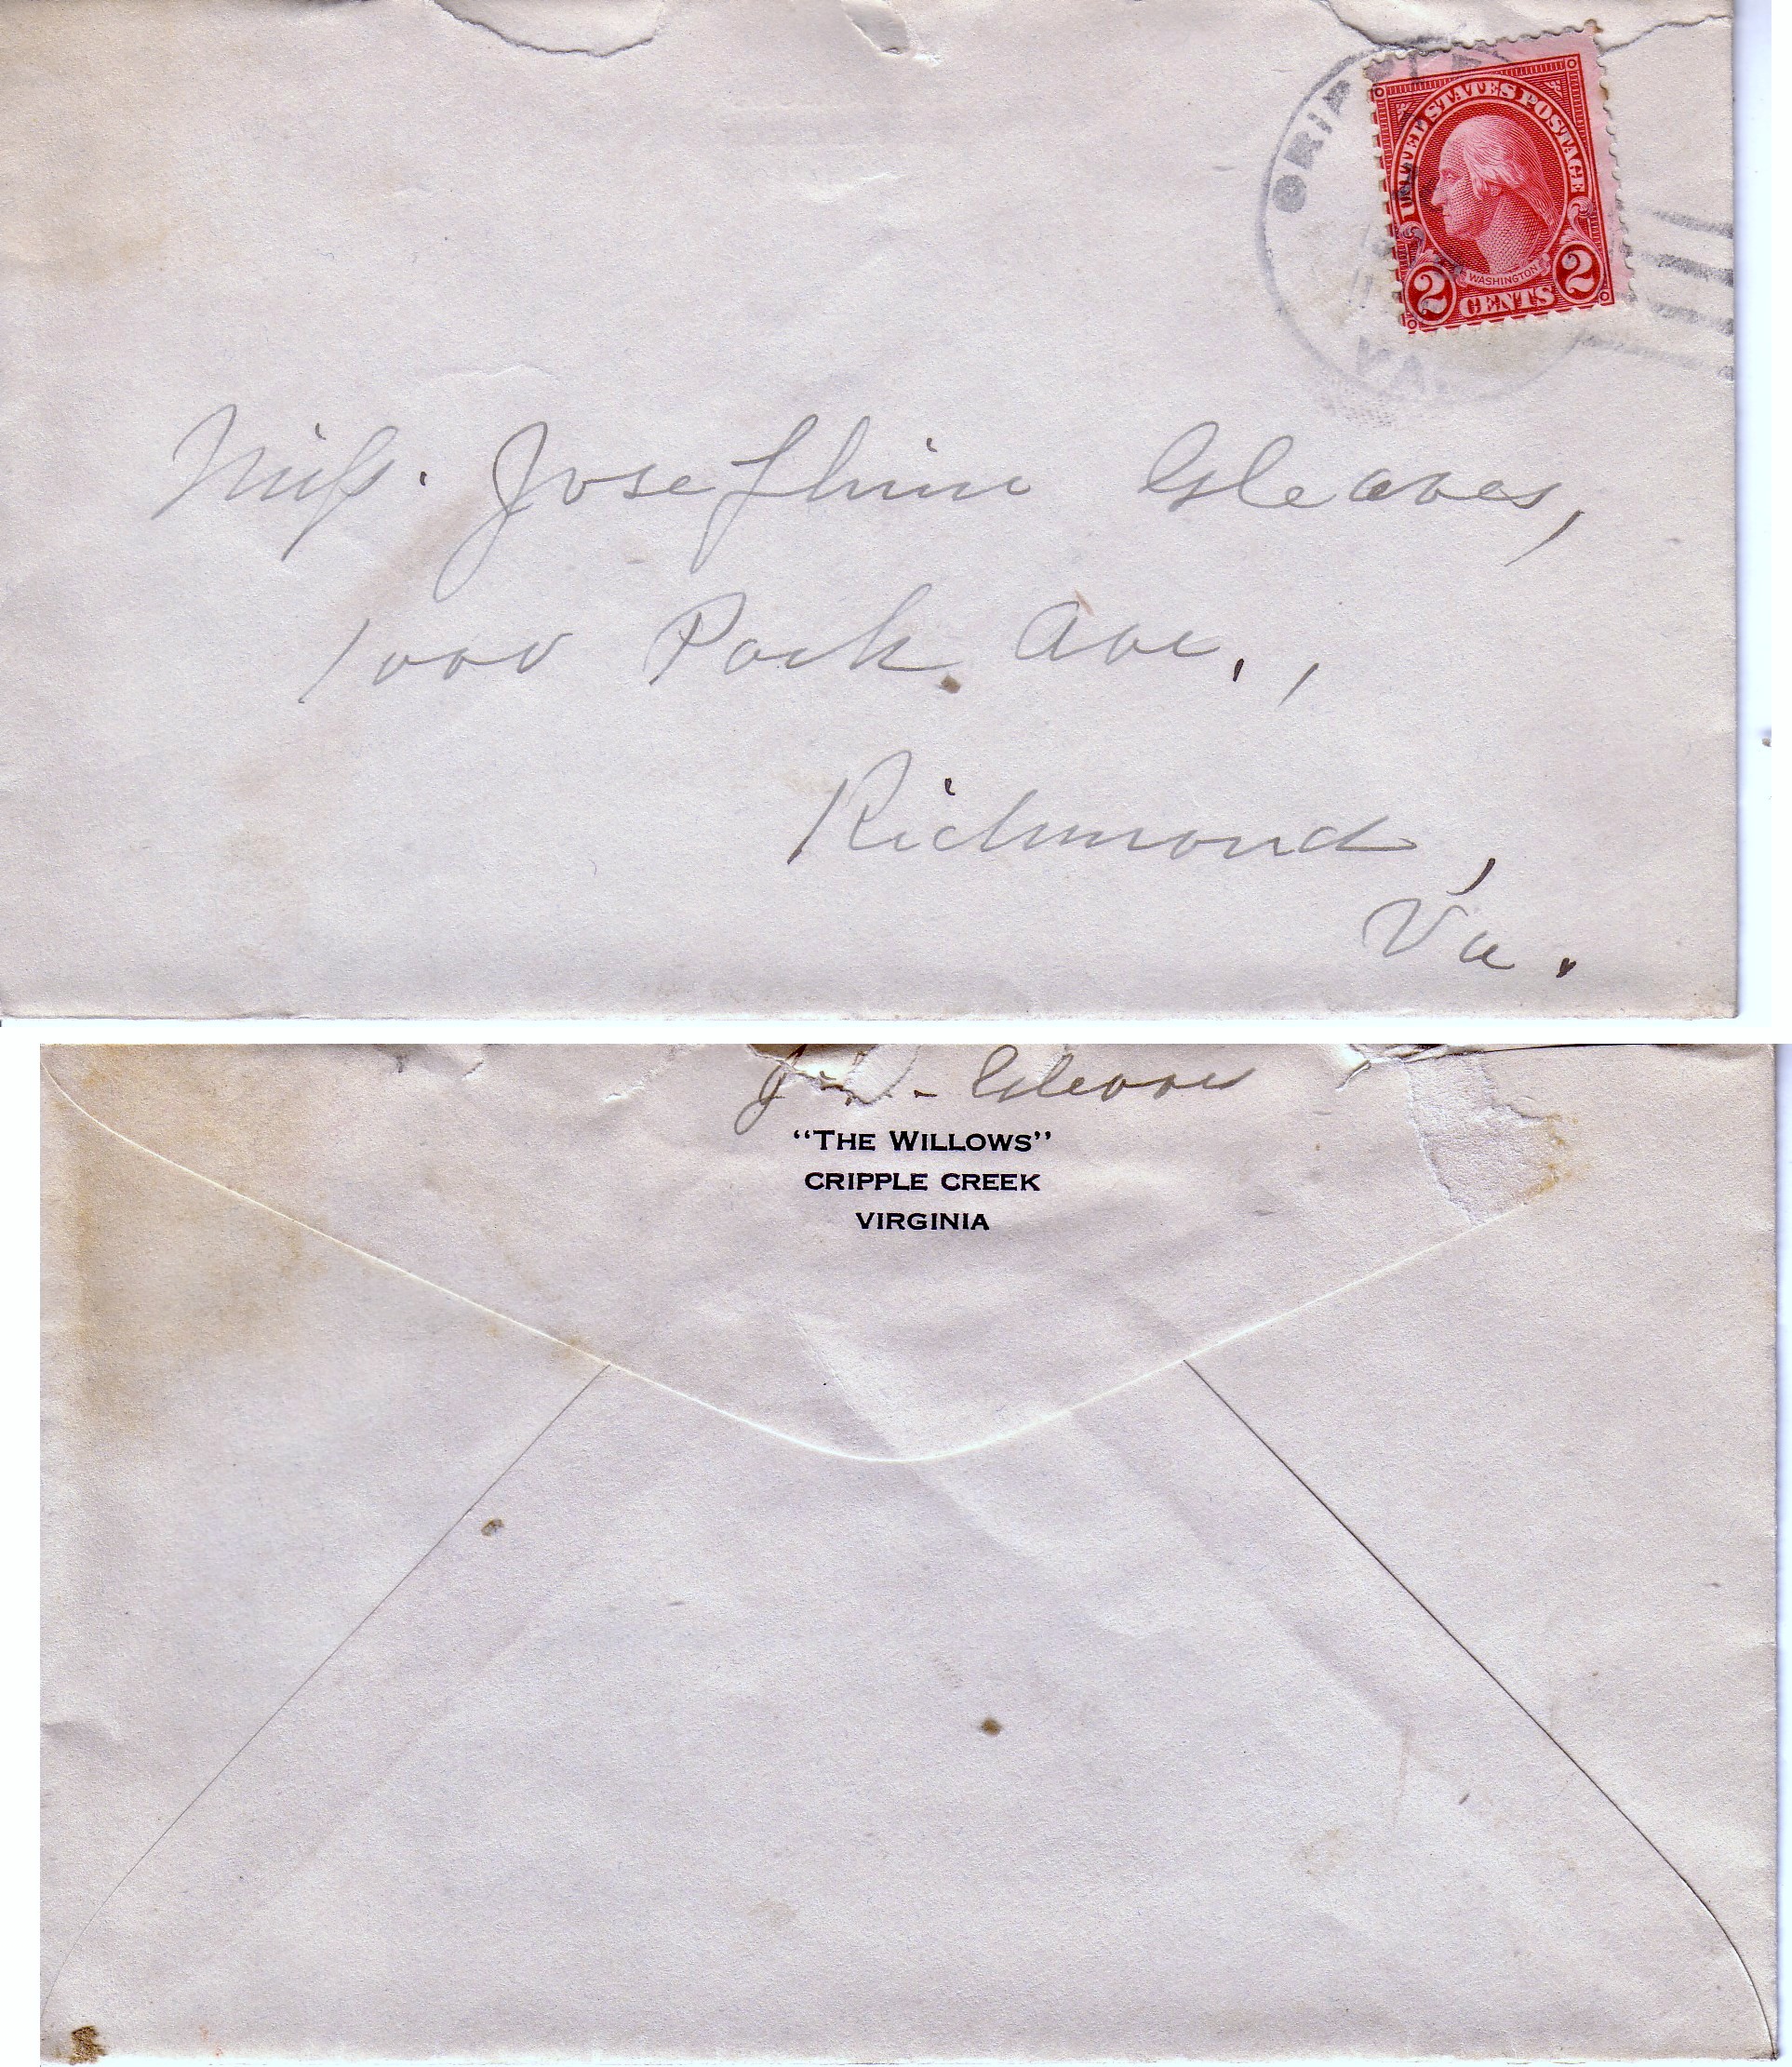 CRIPPLE
VA.
UNITED STATES POSTAGE
WASHINGTON
2 CENTS 2
Miss. Josephine Gleaves,
1000 Park Ave.,
Richmond,
Va.
Gleaves
“THE WILLOWS”
CRIPPLE CREEK
VIRGINIA